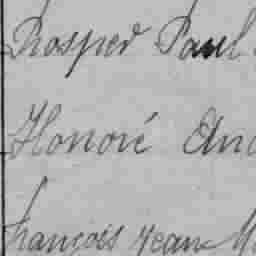 Prosper Paul
Honoré And
François Jean M